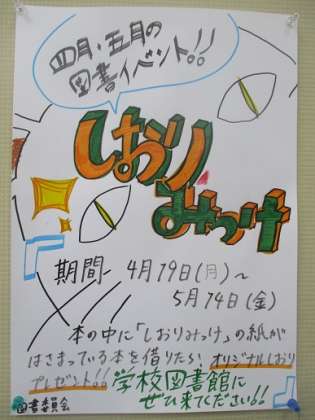 四月、五月の
図書イベント!!
しおり
みっけ
期間- 4月19日(月)～
5月14日(金)
本の中に「しおりみっけ」の紙が
はさまっている本を借りたら、オリジナルしおり
プレゼント!! 学校図書館に
ぜひ来てください!!
図書委員会